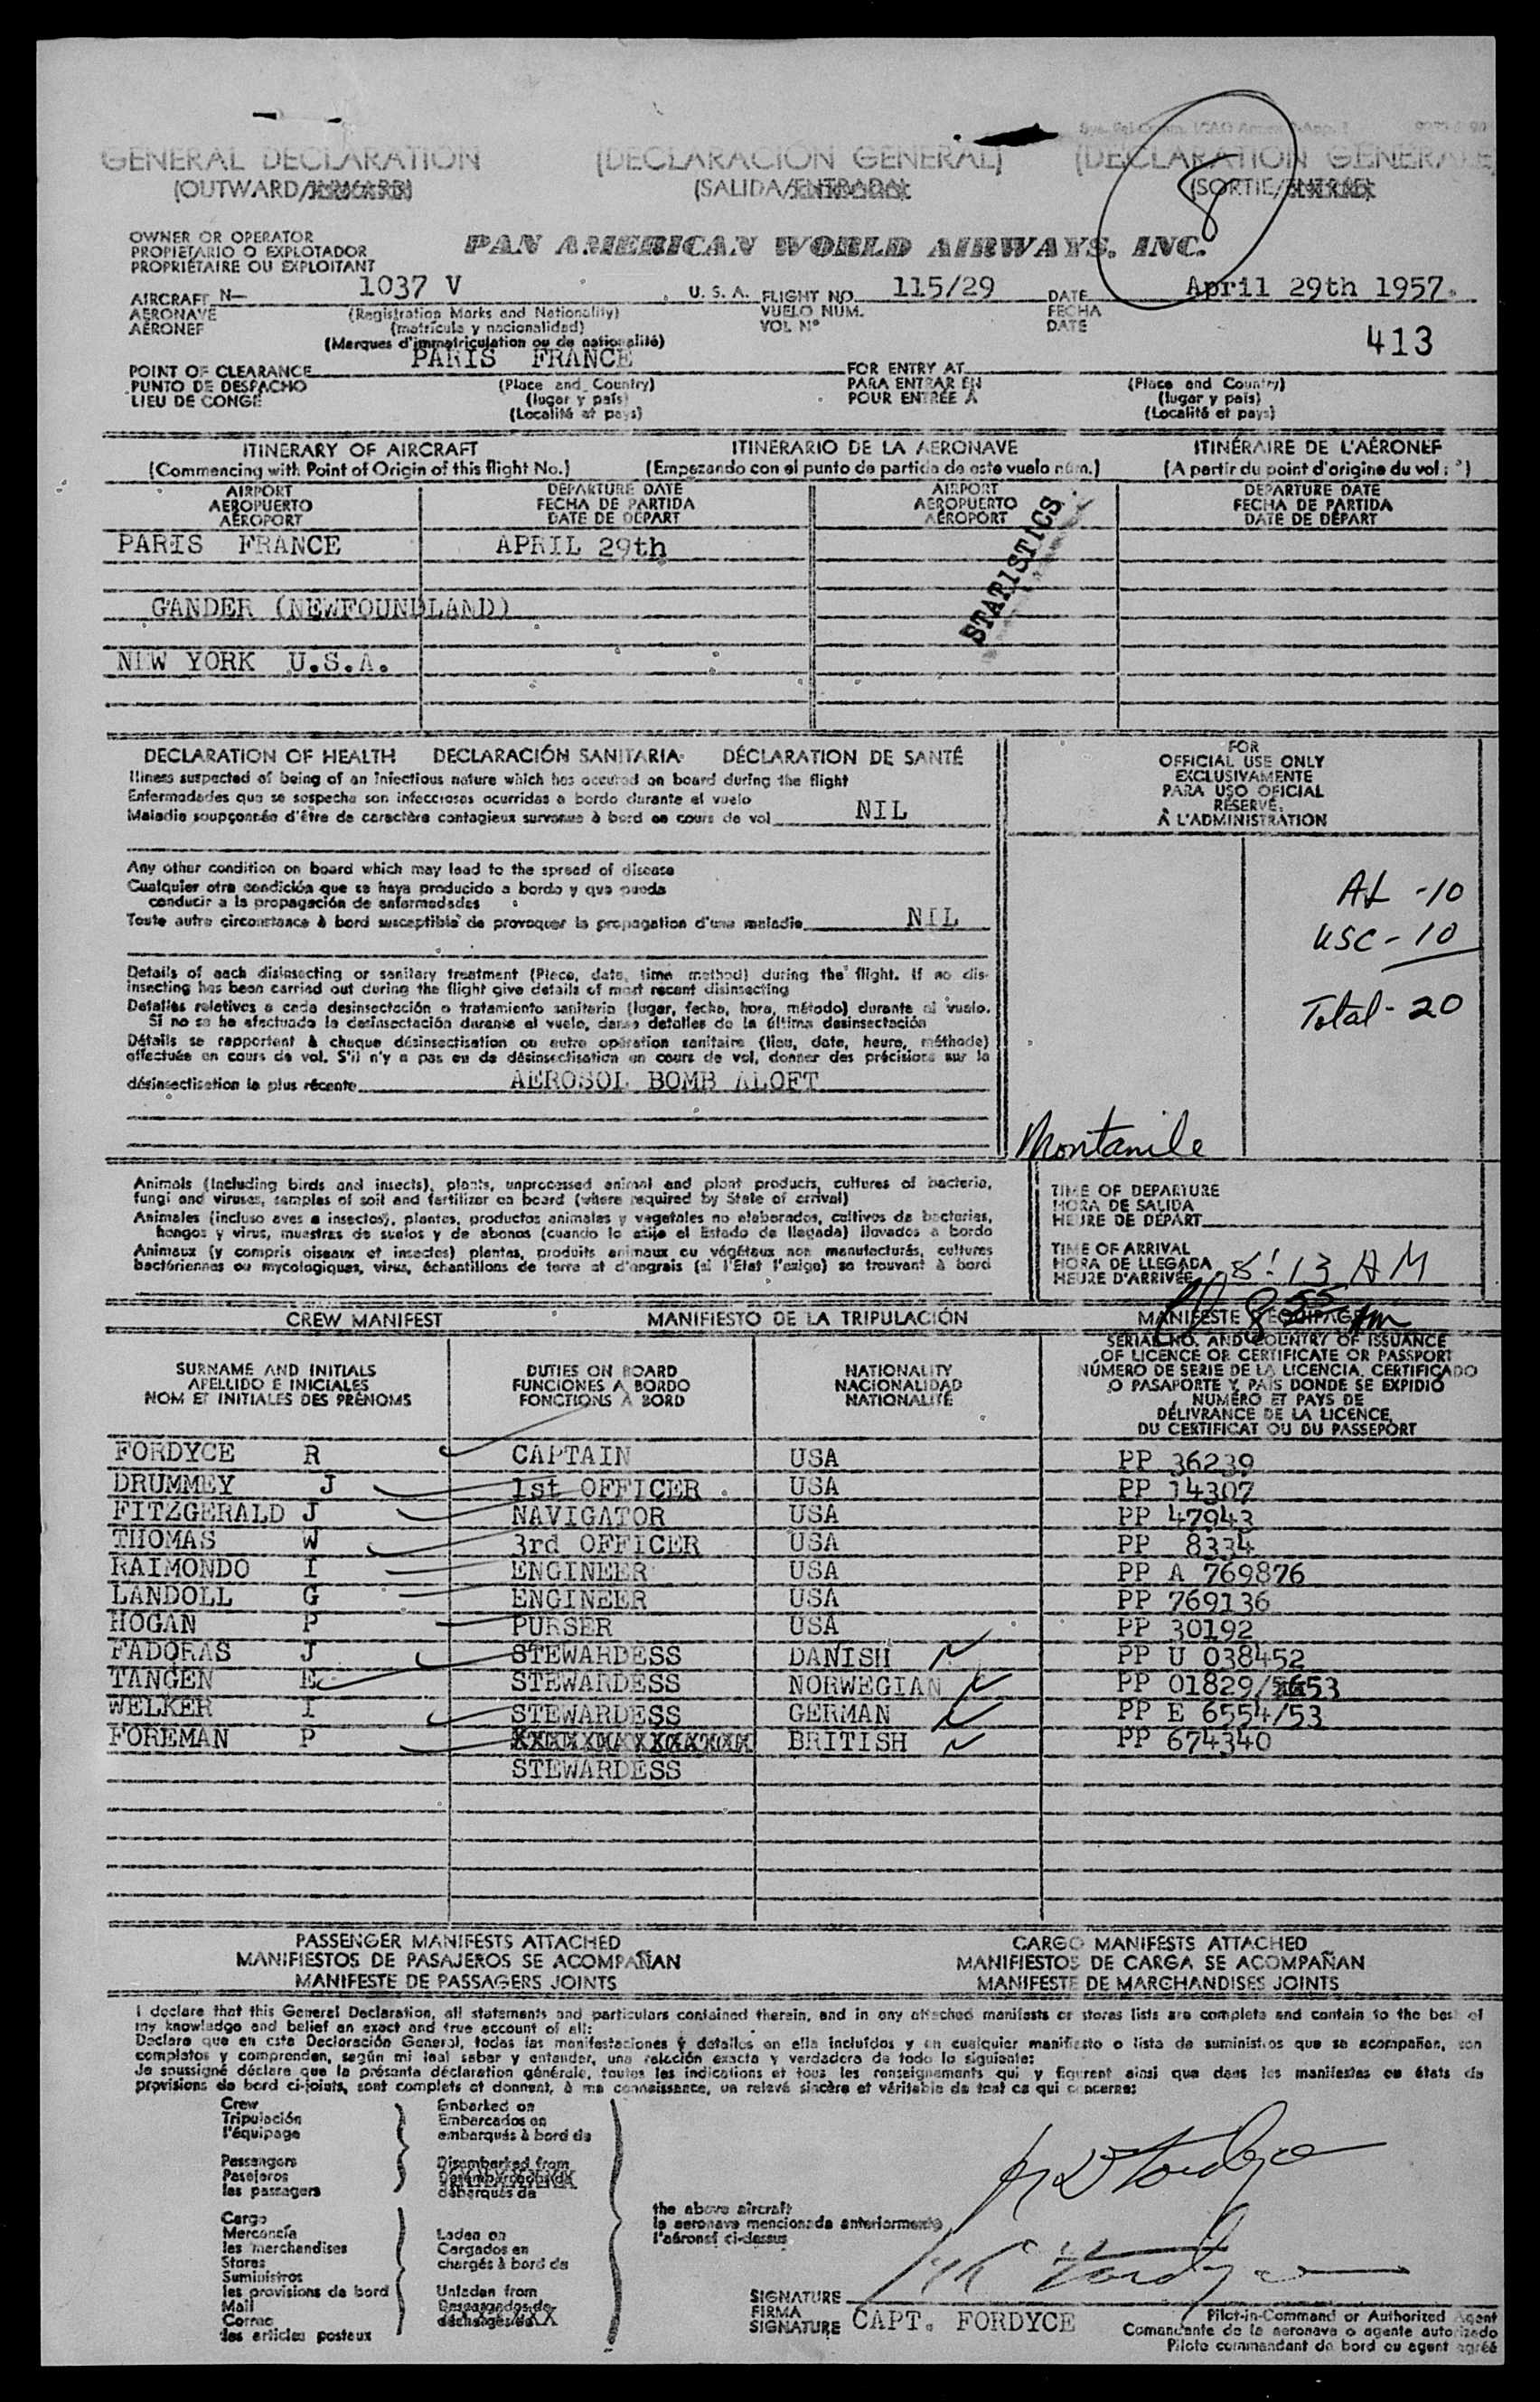 GENERAL DECLARATION (DECLARACIÓN GENERAL) (DECLARATION GENERALE)
(OUTWARD/INWARD) (SALIDA/ENTRADA) (SORTIE/ENTRÉE)
8
OWNER OR OPERATOR
PROPIETARIO O EXPLOTADOR
PROPRIÉTAIRE OU EXPLOITANT
PAN AMERICAN WORLD AIRWAYS, INC.
AIRCRAFT N— 1037 V U. S. A. FLIGHT NO. 115/29 DATE April 29th 1957.
AERONAVE (Registration Marks and Nationality) VUELO NUM. FECHA
AÉRONEF (matrícula y nacionalidad) VOL Nº DATE
(Marques d'immatriculation ou de nationalité)
413
POINT OF CLEARANCE PARIS FRANCE FOR ENTRY AT
PUNTO DE DESPACHO (Place and Country) PARA ENTRAR EN (Place and Country)
LIEU DE CONGÉ (lugar y país) POUR ENTRÉE À (lugar y país)
(Localité et pays) (Localité et pays)
ITINERARY OF AIRCRAFT ITINERARIO DE LA AERONAVE ITINÉRAIRE DE L'AÉRONEF
(Commencing with Point of Origin of this flight No.) (Empezando con el punto de partida de este vuelo núm.) (A partir du point d'origine du vol nº)
AIRPORT DEPARTURE DATE AIRPORT DEPARTURE DATE
AEROPUERTO FECHA DE PARTIDA AEROPUERTO FECHA DE PARTIDA
AÉROPORT DATE DE DÉPART AÉROPORT DATE DE DÉPART
PARIS FRANCE APRIL 29th
STATISTICS
GANDER (NEWFOUNDLAND)
NEW YORK U.S.A.
DECLARATION OF HEALTH DECLARACIÓN SANITARIA DÉCLARATION DE SANTÉ
Illness suspected of being of an infectious nature which has occured on board during the flight
Enfermedades que se sospecha son infecciosas ocurridas a bordo durante el vuelo
Maladie soupçonnée d'être de caractère contagieux survenue à bord en cours de vol NIL
Any other condition on board which may lead to the spread of disease
Cualquier otra condición que se haya producido a bordo y que pueda
conducir a la propagación de enfermedades
Toute autre circonstance à bord susceptible de provoquer la propagation d'une maladie NIL
Details of each disinsecting or sanitary treatment (Place, date, time method) during the flight. If no dis-
insecting has been carried out during the flight give details of most recent disinsecting
Detalles relativos a cada desinsectación o tratamiento sanitario (lugar, fecha, hora, método) durante el vuelo.
Si no se ha efectuado la desinsectación durante el vuelo, danse detalles de la última desinsectación
Détails se rapportent à chaque désinsectisation ou autre opération sanitaire (lieu, date, heure, méthode)
effectuée en cours de vol. S'il n'y a pas eu de désinsectisation en cours de vol, donner des précisions sur la
désinsectisation la plus récente AEROSOL BOMB ALOFT
FOR
OFFICIAL USE ONLY
EXCLUSIVAMENTE
PARA USO OFICIAL
RÉSERVÉ
À L'ADMINISTRATION
AL -10
USC - 10
Total - 20
Montanile
Animals (Including birds and insects), plants, unprocessed animal and plant products, cultures of bacteria,
fungi and viruses, samples of soil and fertilizer on board (where required by State of arrival)
Animales (incluso aves e insectos), plantas, productos animales y vegetales no elaborados, cultivos de bacterias,
hongos y virus, muestras de suelos y de abonos (cuando lo exija el Estado de llegada) llevados a bordo
Animaux (y compris oiseaux et insectes) plantes, produits animaux ou végétaux non manufacturés, cultures
bactériennes ou mycologiques, virus, échantillons de terre et d'engrais (si l'Etat l'exige) se trouvant à bord
TIME OF DEPARTURE
HORA DE SALIDA
HEURE DE DÉPART
TIME OF ARRIVAL
HORA DE LLEGADA
HEURE D'ARRIVÉE 8:13 AM
8 55 Am
CREW MANIFEST MANIFIESTO DE LA TRIPULACIÓN MANIFESTE D'ÉQUIPAGE
SURNAME AND INITIALS
APELLIDO E INICIALES
NOM ET INITIALES DES PRÉNOMS
DUTIES ON BOARD
FUNCIONES A BORDO
FONCTIONS À BORD
NATIONALITY
NACIONALIDAD
NATIONALITÉ
SERIAL NO. AND COUNTRY OF ISSUANCE
OF LICENCE OR CERTIFICATE OR PASSPORT
NÚMERO DE SERIE DE LA LICENCIA, CERTIFICADO
O PASAPORTE Y PAÍS DONDE SE EXPIDIÓ
NUMÉRO ET PAYS DE
DÉLIVRANCE DE LA LICENCE,
DU CERTIFICAT OU DU PASSEPORT
FORDYCE R CAPTAIN USA PP 36239
DRUMMEY J 1st OFFICER USA PP 14307
FITZGERALD J NAVIGATOR USA PP 47943
THOMAS W 3rd OFFICER USA PP 8334
RAIMONDO I ENGINEER USA PP A 769876
LANDOLL G ENGINEER USA PP 769136
HOGAN P PURSER USA PP 30192
FADORAS J STEWARDESS DANISH PP U 038452
TANGEN E STEWARDESS NORWEGIAN PP 01829/53
WELKER I STEWARDESS GERMAN PP E 6554/53
FOREMAN P BRITISH PP 674340
STEWARDESS
PASSENGER MANIFESTS ATTACHED CARGO MANIFESTS ATTACHED
MANIFIESTOS DE PASAJEROS SE ACOMPAÑAN MANIFIESTOS DE CARGA SE ACOMPAÑAN
MANIFESTE DE PASSAGERS JOINTS MANIFESTE DE MARCHANDISES JOINTS
I declare that this General Declaration, all statements and particulars contained therein, and in any attached manifests or stores lists are complete and contain to the best of
my knowledge and belief an exact and true account of all:
Declaro que en esta Declaración General, todas las manifestaciones y detalles en ella incluídos y en cualquier manifiesto o lista de suministros que se acompañan, son
completos y comprenden, según mi leal saber y entender, una relación exacta y verdadera de todo lo siguiente:
Je soussigné déclare que la présente déclaration générale, toutes les indications et tous les renseignements qui y figurent ainsi que dans les manifestes ou états de
provisions de bord ci-joints, sont complets et donnent, à ma connaissance, un relevé sincère et véritable de tout ce qui concerne:
Crew Embarked on
Tripulación Embarcados en
l'équipage embarqués à bord de
Passengers Disembarked from
Pasajeros Desembarcados de
les passagers débarqués de
Cargo
Mercancía Laden on
les merchandises Cargados en
Stores chargés à bord de
Suministros
les provisions de bord Unladen from
Mail Descargados de
Correo déchargés de
les articles postaux
the above aircraft
la aeronave mencionada anteriormente
l'aéronef ci-dessus
SIGNATURE
FIRMA
SIGNATURE CAPT. FORDYCE
Pilot-in-Command or Authorized Agent
Comandante de la aeronave o agente autorizado
Pilote commandant de bord ou agent agréé